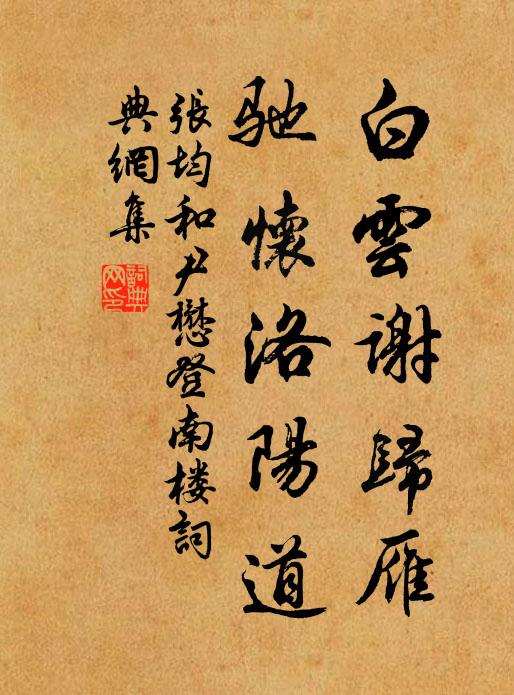 白雲謝歸雁
馳懷洛陽道
張均和尹懋登南楼詞
典網集
詞典
网印